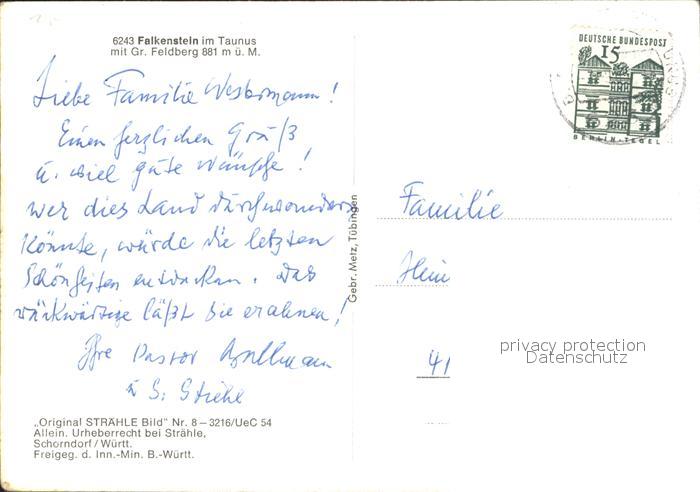 6243 Falkenstein im Taunus
mit Gr. Feldberg 881 m ü. M.
Liebe Familie Westermann!
Einen herzlichen Gruß
u. viel gute Wünsche!
Wer dies Land durchwandern
könnte, würde die letzten
Schönheiten entdecken. Das
rückwärtige läßt sie erahnen!
Ihre Pastor
u S. Stiehl
„Original STRÄHLE Bild" Nr. 8 – 3216/UeC 54
Allein. Urheberrecht bei Strähle,
Schorndorf / Württ.
Freigeg. d. Inn.-Min. B.-Württ.
Gebr. Metz, Tübingen
DEUTSCHE BUNDESPOST
15
BERLIN-TEGEL
Familie
Hein
41
privacy protection
Datenschutz